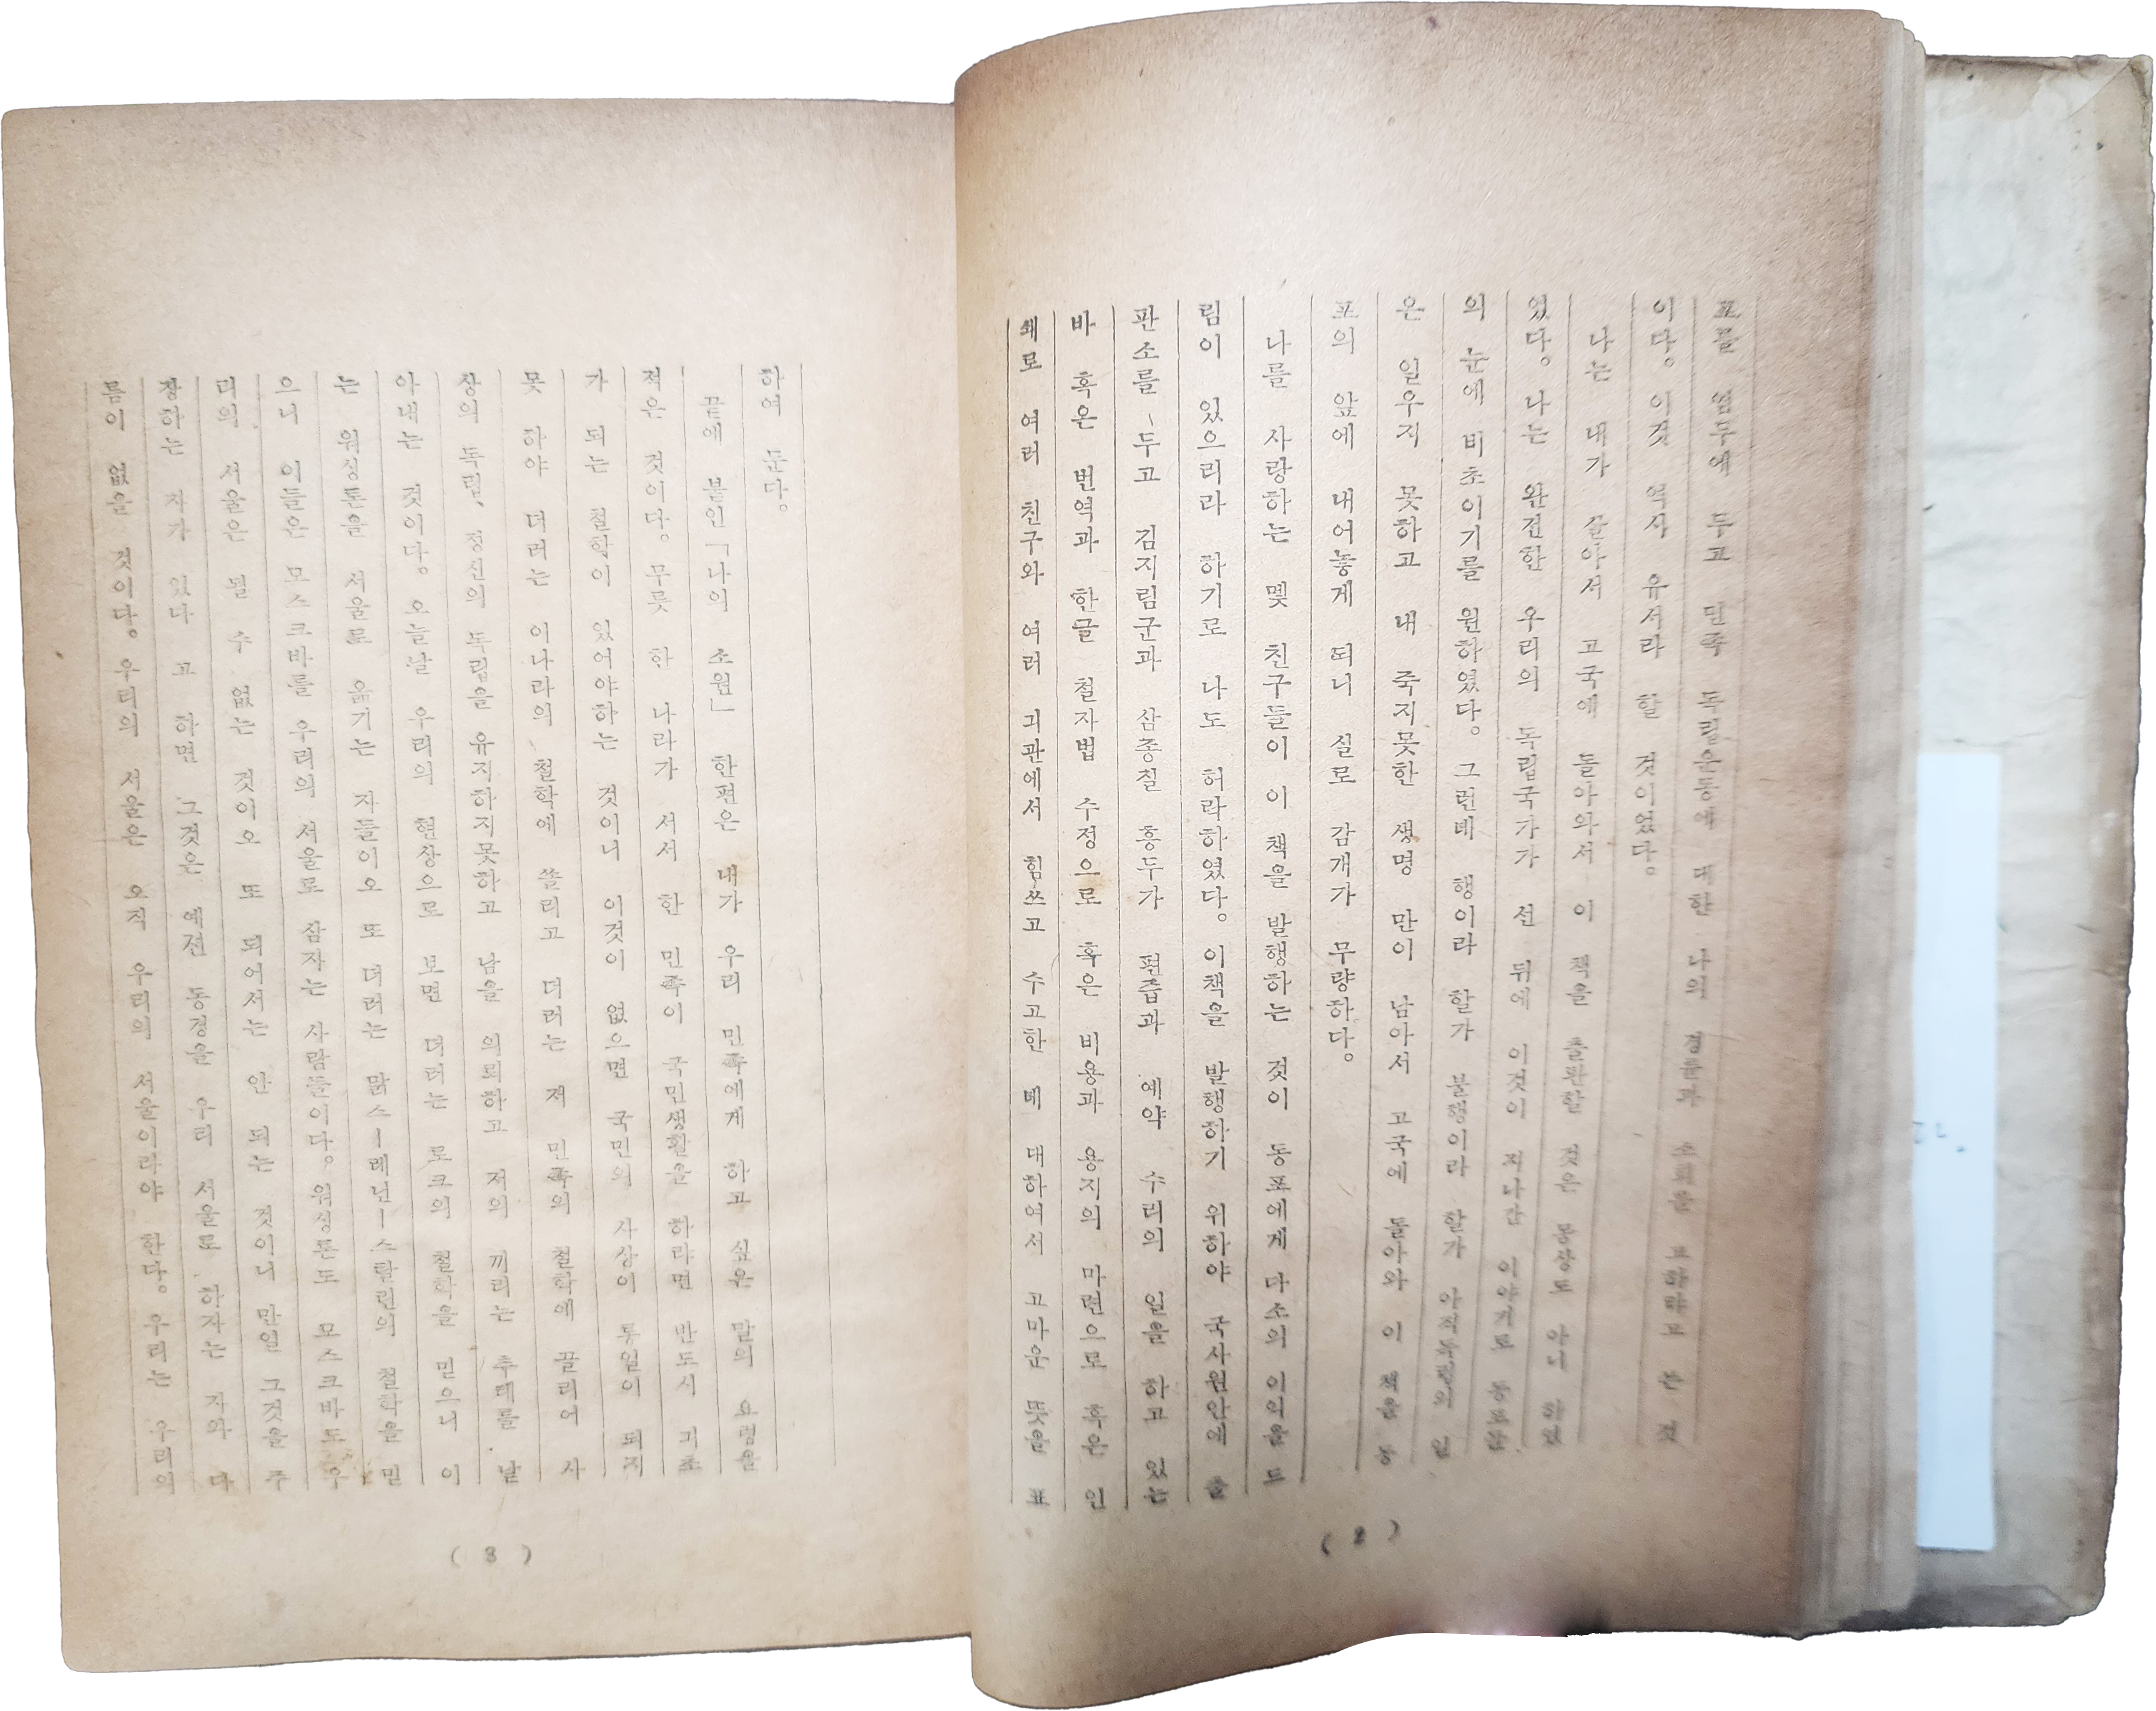 표를 염두에 두고 민족 독립운동에 대한 나의 경륜과 소회를 고하랴고 쓴 것
이다。 이것 역시 유서라 할 것이었다。
나는 내가 살아서 고국에 돌아와서 이 책을 출판할 것은 몽상도 아니 하였
었다。 나는 완전한 우리의 독립국가가 선 뒤에 이것이 지나간 이야기로 동포들
의 눈에 비초이기를 원하였다。 그런데 행이라 할가 불행이라 할가 아직독립의 일
은 일우지 못하고 내 죽지못한 생명 만이 남아서 고국에 돌아와 이 책을 동
포의 앞에 내어놓게 되니 실로 감개가 무량하다。
나를 사랑하는 몇 친구들이 이 책을 발행하는 것이 동포에게 다소의 이익을 드
림이 있으리라 하기로 나도 허락하였다。 이책을 발행하기 위하야 국사원안의 출
판소를 두고 김지림군과 삼종질 흥두가 편줍과 예약 수리의 일을 하고 있는
바 혹은 번역과 한글 철자법 수정으로 혹은 비용과 용지의 마련으로 혹은 인
쇄로 여러 친구와 여러 긔관에서 힘쓰고 수고한 데 대하여서 고마운 뜻을 표
( 2 )
하여 둔다。
끝에 붙인 「나의 소원」 한편은 내가 우리 민족에게 하고 싶은 말의 요령을
적은 것이다。 무릇 한 나라가 서서 한 민족이 국민생활을 하랴면 반드시 긔초
가 되는 철학이 있어야하는 것이니 이것이 없으면 국민의 사상이 통일이 되지
못 하야 더러는 이나라의 철학에 쏠리고 더러는 저 민족의 철학에 끌리어 사
상의 독립、 정신의 독립을 유지하지못하고 남을 의뢰하고 저의 끼리는 추태를 낱
아내는 것이다。 오늘날 우리의 현상으로 보면 더러는 로크의 철학을 믿으니 이
는 워싱톤을 서울로 옮기는 자들이오 또 더러는 맑스ー레닌ー스탈린의 철학을 믿
으니 이들은 모스크바를 우리의 서울로 삼자는 사람들이다。 워싱톤도 모스크바도 우
리의 서울은 될 수 없는 것이오 또 되어서는 안 되는 것이니 만일 그것을 주
장하는 자가 있다 고 하면 그것은 예전 동경을 우리 서울로 하자는 자와 다
름이 없을 것이다。 우리의 서울은 오직 우리의 서울이라야 한다。 우리는 우리의
( 3 )